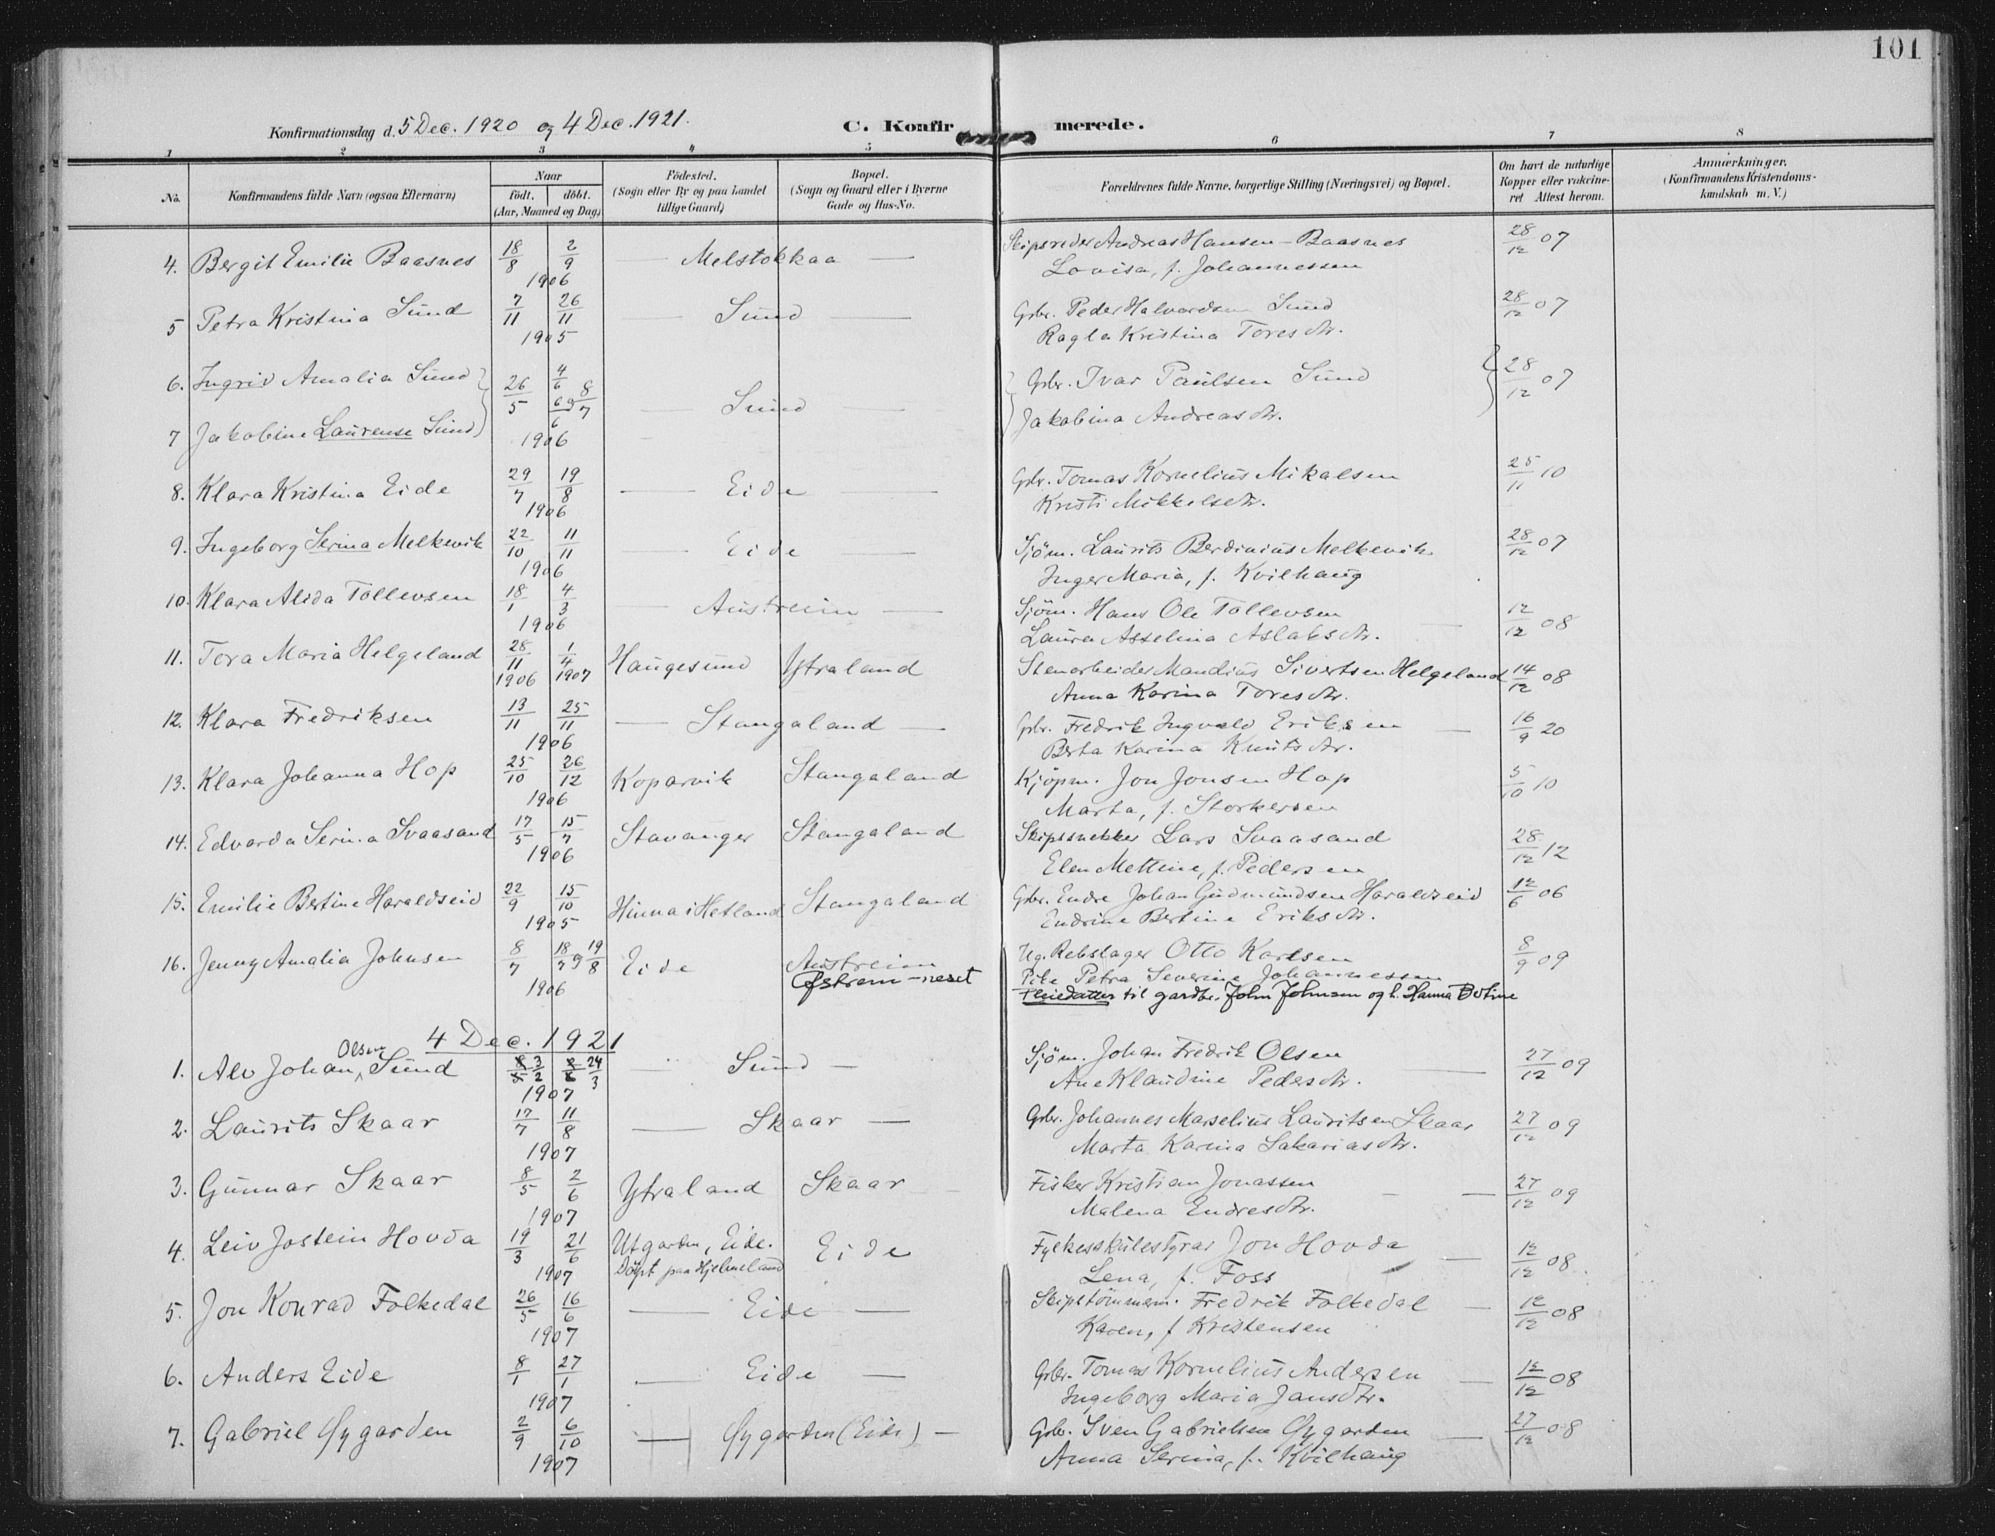 101
Konfirmationsdag d. 5 Dec. 1920 og 4 Dec. 1921. C. Konfirmerede.
1 2 3 4 5 6 7 8
No. Konfirmandens fulde Navn (ogsaa Efternavn) Naar født. døbt. (Aar, Maaned og Dag) Fødested. (Sogn eller By og paa Landet tillige Gaard) Bopæl. (Sogn og Gaard eller i Byerne Gade og Hus-No. Forældrenes fulde Navne, borgerlige Stilling (Næringsvei) og Bopæl. Om havt de naturlige Kopper eller vakcineret Attest herom. Anmærkninger. (Konfirmandens Kristendomskundskab m. V.)
4. Bergit Emilie Baasnes 18/8 2/9 — Melstokkaa — Skipsreder Andreas Hansen Baasnes 28/12 07
1906 Lovisa, f. Johannessen
5 Petra Kristina Sund 7/11 26/11 — Sund — Grbr. Peder Halvardsen Sund 28/12 07
1905 Ragla Kristina Toresdtr.
6. Ingrid Amalia Sund 26/5 4/6 Grbr. Ivar Paulsen Sund 28/12 07
6/6 og 8/7 — Sund —
7 Jakobine Laurense Sund 1906 Jakobina Andreasdtr.
8. Klara Kristina Eide 29/7 19/8 — Eide — Grbr. Tomas Kornelius Mikalsen 25/11 10
1906 Kristi Mikkelsdtr.
9. Ingeborg Serina Melkevik 22/10 11/11 — Eide — Sjøm. Laurits Berdinius Melkevik 28/12 07
1906 Inger Maria, f. Kvilhaug
10. Klara Alida Tollevsen 18/1 4/3 — Austreim — Sjøm. Hans Ole Tollevsen 12/12 08
1906 Laura Asselina Aslaksdtr.
11. Tora Maria Helgeland 28/11 1906 1/4 1907 Haugesund Ytraland Stenarbeider Mandius Sivertsen Helgeland 14/12 08
Anna Karina Toresdtr.
12. Klara Fredriksen 13/11 25/11 — Stangaland — Grbr. Fredrik Ingvald Eriksen — 16/9 20
1906 Berta Karina Knutsdtr.
13. Klara Johanna Hop 25/10 26/12 Koparvik Stangaland Kjøpm. Jon Jonsen Hop 5/10 10
1906 Marta, f. Storkersen
14. Edvarda Serina Svaasand 17/5 15/7 Stavanger Stangaland Skipssnekker Lars Svaasand 28/12 12
1906 Elen Mettine, f. Pedersen
15. Emilie Bertine Haraldseid 22/9 15/10 Hinna i Hetland Stangaland Grbr. Endre Johan Gudmundsen Haraldseid 12/6 06
1905 Endrine Bertine Eriksdtr.
16. Jenny Amalia Johnsen 8/7 18/7 og 19/8 Eide Austreim Ug. Rebslager Otto Karlsen 8/9 09
1906 Østrem-neset Pike Petra Severine Johannessen
Pleiedatter til gardbr. John Johnsen og h. Hanna Botine
4 Dec. 1921
1. Alv Johan Olsen Sund 3/2 24/3 Sund — Sjøm. Johan Fredrik Olsen 27/12 09
1907 Ane Klaudine Pedersdtr.
2. Laurits Skaar 17/7 11/8 — Skaar — Grbr. Johannes Marselius Lauritsen Skaar 27/12 09
1907 Marta Karina Sakariasdtr.
3. Gunnar Skaar 8/5 2/6 Ytraland Skaar Fisker Kristian Jonassen — 27/12 09
1907 Malena Endresdtr.
4. Leiv Jostein Hovda 19/3 21/6 Utgarden, Eide. Eide Fylkesskulestyrar Jon Hovda 12/12 08
1907 Døpt paa Hjelmeland Lena, f. Foss
5. Jon Konrad Folkedal 26/5 16/6 — Eide — Skipstømmerm. Fredrik Folkedal — 12/12 08
1907 Karen, f Kristensen
6. Anders Eide 8/1 27/1 — Eide — Grbr. Tomas Kornelius Andersen — 12/12 08
1907 Ingeborg Maria Jansdtr.
7. Gabriel Øygarden 2/9 6/10 — Øygarden (Eide) — Grbr. Sven Gabrielsen Øygarden — 27/12 08
1907 Anna Serina, f. Kvilhaug